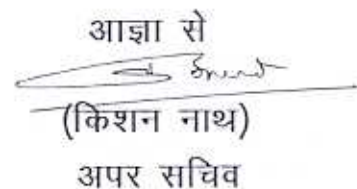 आज्ञा से
(किशन नाथ)
अपर सचिव